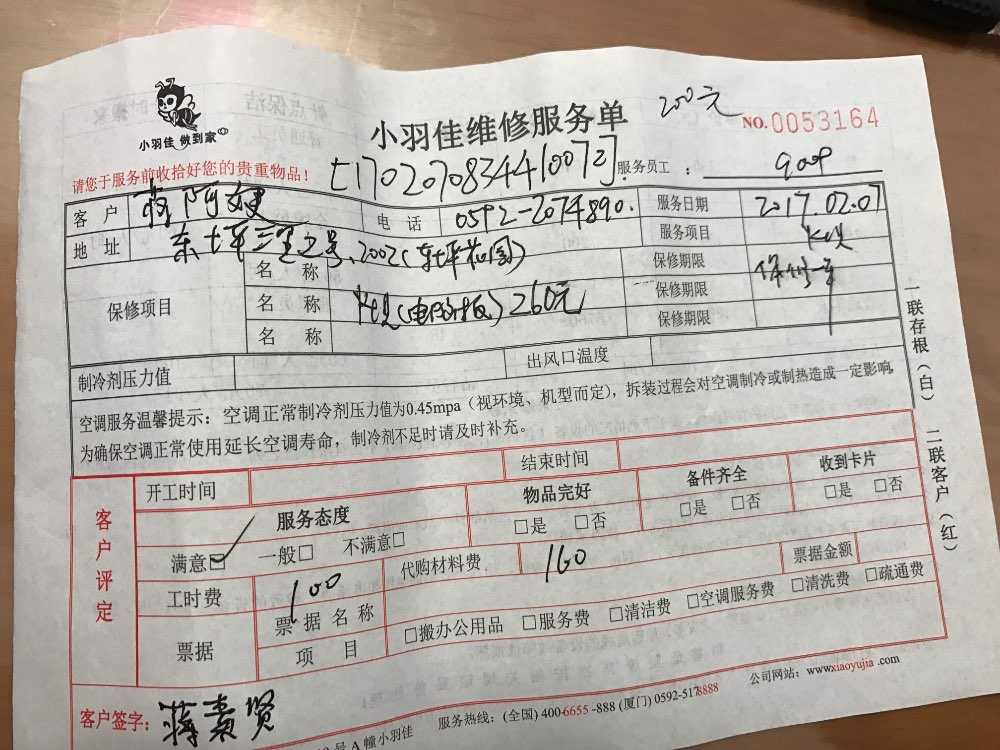 小羽佳 做到家
小羽佳维修服务单
200元
NO.0053164
请您于服务前收拾好您的贵重物品！
[1702070834410072]
服务员工：
客户 蒋阿姨
电话 0592-2074890.
服务日期 2017.02.07
地址 东坪三里2号、2002(东坪花园)
服务项目
保修项目
名称
保修期限 保修一年
名称 (电路板)260元
保修期限
名称
保修期限
制冷剂压力值
出风口温度
空调服务温馨提示：空调正常制冷剂压力值为0.45mpa（视环境、机型而定），拆装过程会对空调制冷或制热造成一定影响，
为确保空调正常使用延长空调寿命，制冷剂不足时请及时补充。
一联存根（白） 二联客户（红）
客户评定
开工时间
结束时间
服务态度
物品完好
备件齐全
收到卡片
满意☑ 一般□ 不满意□
□是 □否
□是 □否
□是 □否
工时费 100
代购材料费 160
票据金额
票据
票据名称
□搬办公用品 □服务费 □清洁费 □空调服务费 □清洗费 □疏通费
项目
客户签字： 蒋素贤
号A幢小羽佳
服务热线：(全国) 400-6655-888 (厦门) 0592-5178888
公司网站：www.xiaoyujia.com